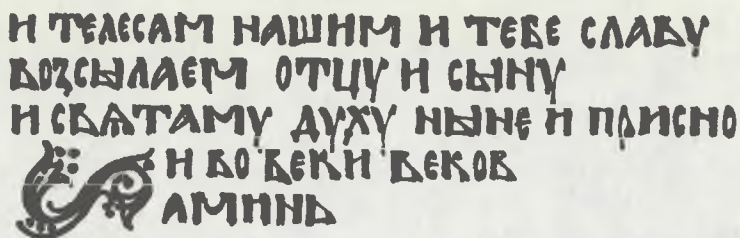 И ТЕЛЕСАМ НАШИМ И ТЕБЕ СЛАВУ
ВОЗСЫЛАЕМ ОТЦУ И СЫНУ
И СВѦТАМУ ДУХУ НЫНЕ И ПРИСНО
И ВО ВЕКИ ВЕКОВ
АМИНЬ